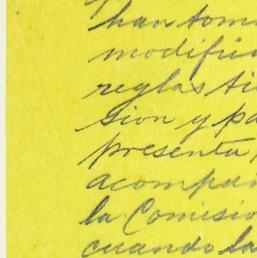 han tom
modific
reglas ti
sion y pa
presenta
acompañ
la Comisio
cuando la